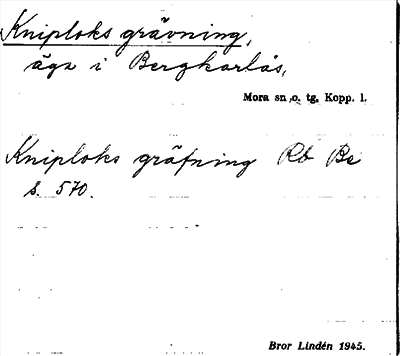 Kniploks grävning,
äga i Bergkarlås,
Mora sn o. tg, Kopp. l.
Kniploks gräfning Rb Be
s. 570.
Bror Lindén 1945.